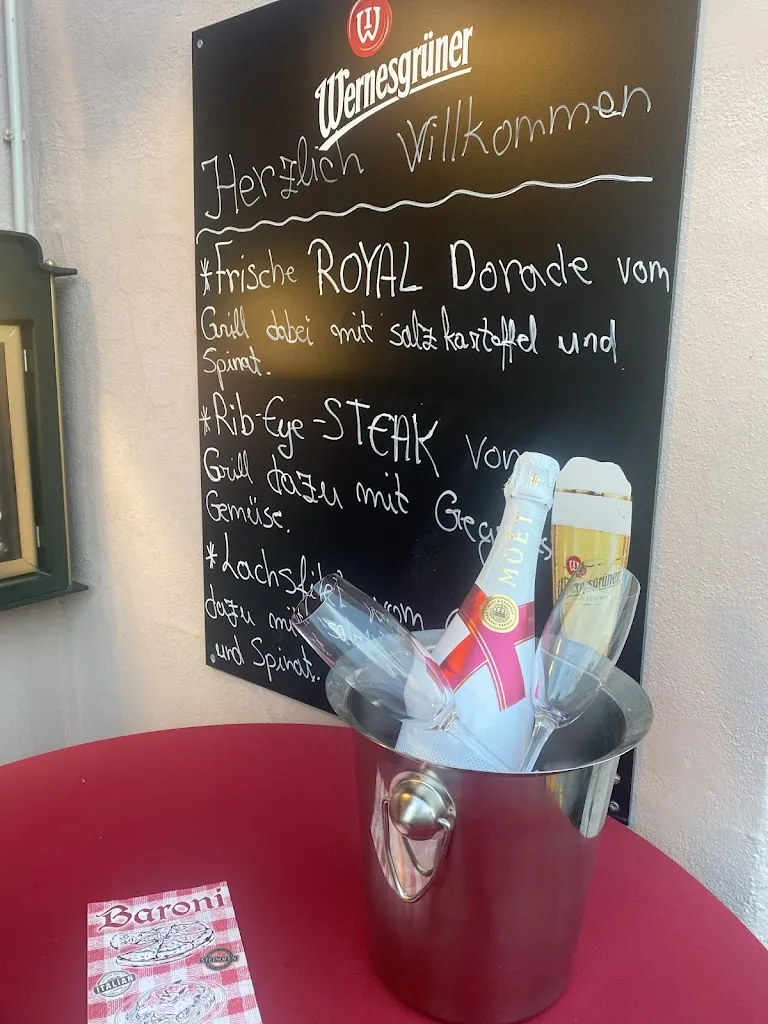 Wernesgrüner
Herzlich Willkommen
*Frische ROYAL Dorade vom
Grill dabei mit salzkartoffel und
Spinat.
*Rib-Eye-STEAK vom
Grill dazu mit
Gemüse.
*Lachsfilet vom
dazu mit
und Spinat.
MOËT
Wernesgrüner
Baroni
STEINOFEN
ITALIAN